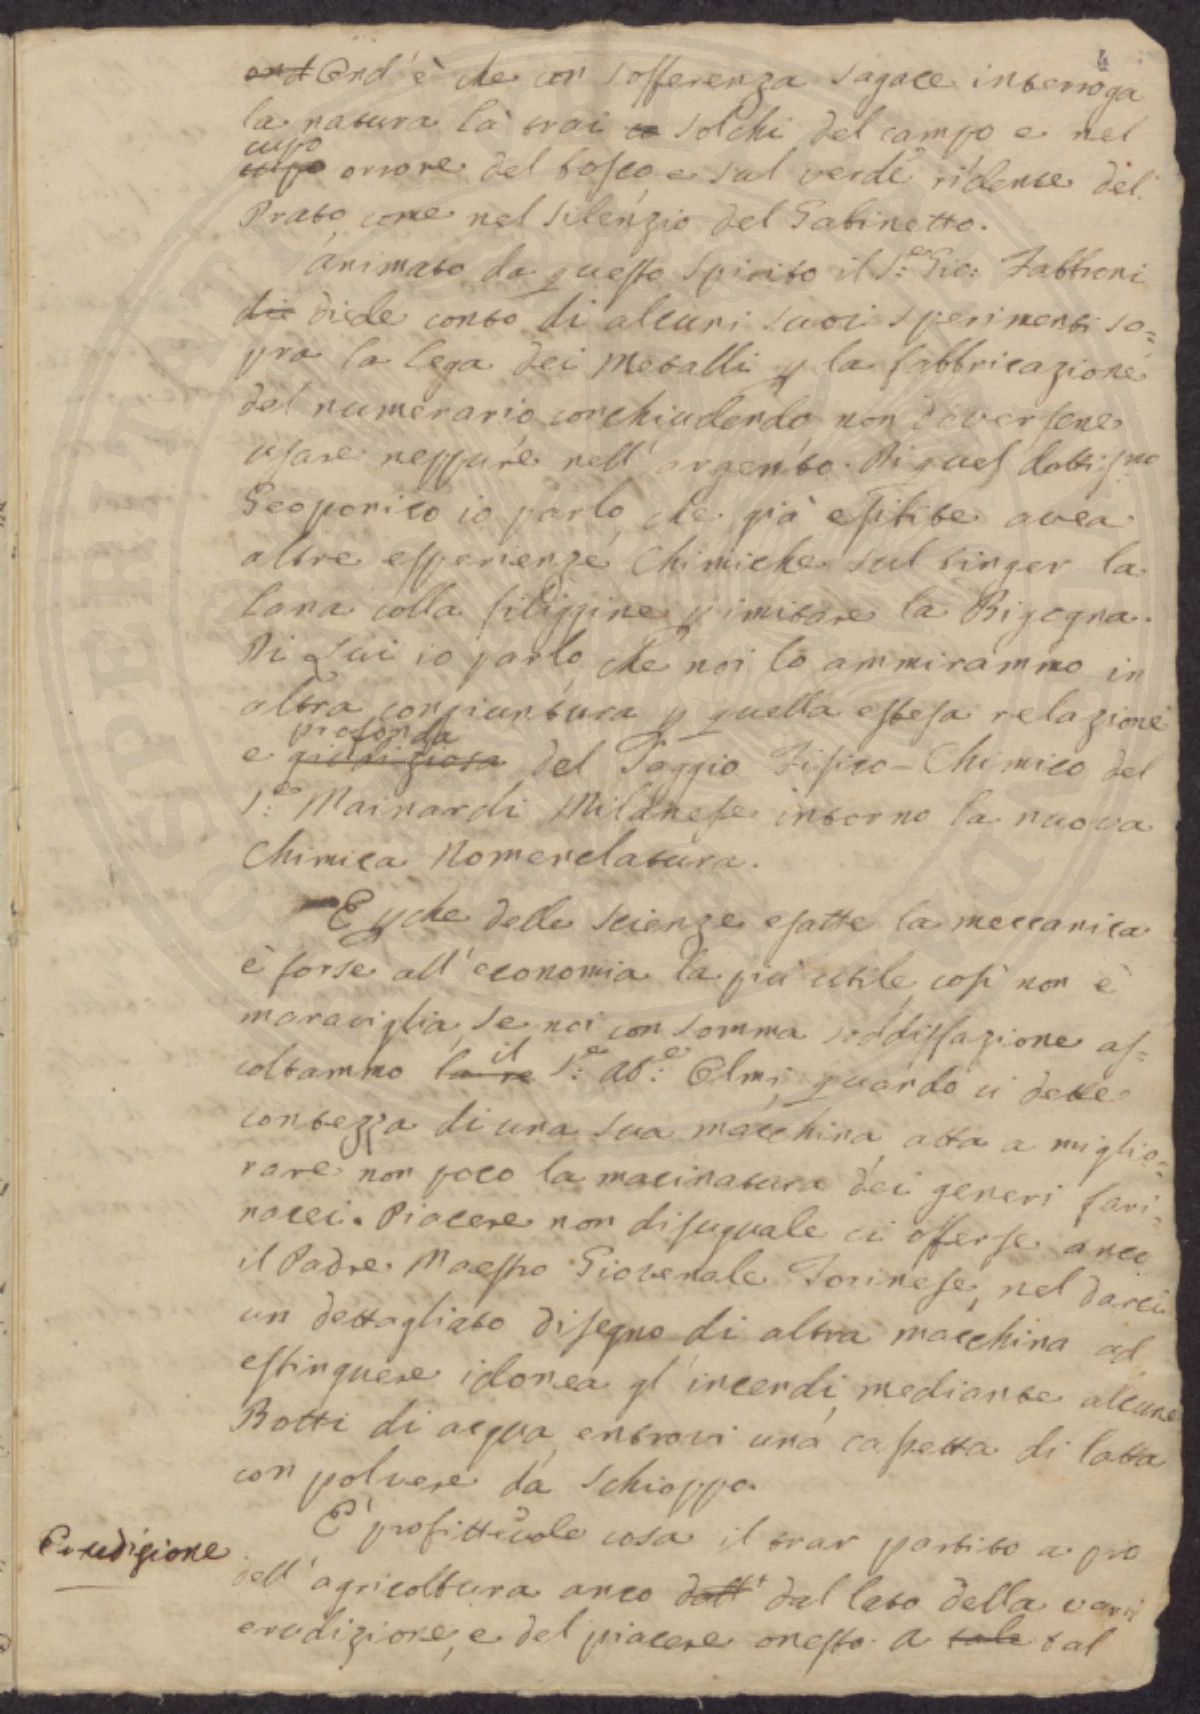 4
ond Ond' è che con sofferenza sagace interroga
la natura là trai so solchi del campo e nel
cupo
cupo orrore del bosco, e sul verde ridente del
Prato, come nel silenzio del Gabinetto.
Animato da questo spirito il S.r Gio: Fabbroni
die diede conto di alcuni suoi sperimenti so=
pra la lega dei Metalli p la fabbricazione
del numerario, conchiudendo, non doversene
usare neppure nell' argento. Di quel dottismo
Geoponico io parlo, che già esibite avea
altre esperienze Chimiche sul tinger la
lana colla filiggine p imitare la Bigogna.
Di Lui io parlo, che noi lo ammirammo in
altra congiuntura p quella estesa relazione
profonda
e giudiziosa del Saggio Fisico-Chimico del
S.r Mainardi Milanese intorno la nuova
Chimica Nomenclatura.
E pche delle scienze esatte la meccanica
è forse all' economia la più utile, così non è
maraviglia, se noi con somma soddisfazione as=
il
coltammo la re S.r Ab.e Elmi, quando ci dette
contezza di una sua macchina, atta a miglio=
rare non poco la macinatura dei generi fari=
nacei. Piacere non disuguale ci offerse anco
il Padre Maestro Giovenale Torinese, nel darci
un dettagliato disegno di altra macchina ad
estinguere idonea gl' incendi, mediante alcune
Botti di acqua, entrovi una cassetta di latta
con polvere da schioppo.
Erudizione
È profittevole cosa il trar partito a pro
dell' agricoltura anco dall' dal lato della varia
erudizione, e del piacere onesto. A tale tal